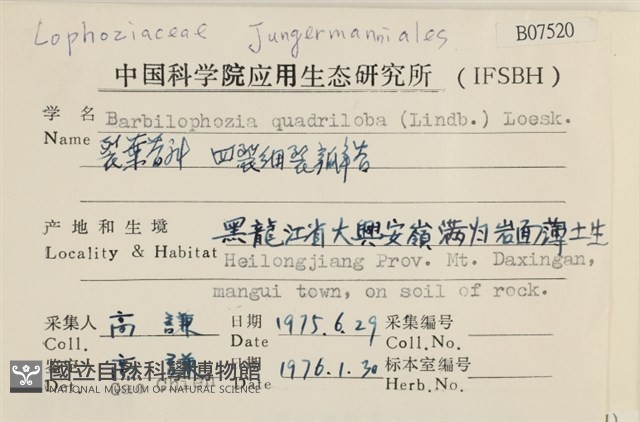 Lophoziaceae Jungermanniales
B07520
中国科学院应用生态研究所 (IFSBH)
学 名 Barbilophozia quadriloba (Lindb.) Loesk.
Name 裂葉苔科 四裂细裂瓣苔
产地和生境 黑龍江省大興安嶺满归岩面薄土生
Locality & Habitat Heilongjiang Prov. Mt. Daxingan,
mangui town, on soil of rock.
采集人 高 謙 日期 1975.6.29 采集编号
Coll. Date Coll.No.
高 謙 日期 1976.1.30 标本室编号
Det. Date Herb.No.
國立自然科學博物館
NATIONAL MUSEUM OF NATURAL SCIENCE